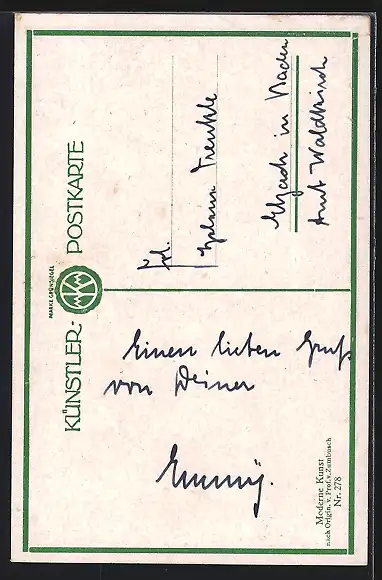 KÜNSTLER-POSTKARTE
MARKE GRÜNSIEGEL
Einen lieben Gruß
von Deiner
Emmy.
Frl.
Trenkle
Elzach in Baden
Amt Waldkirch
Moderne Kunst
nach Origin. v. Prof. v. Zumbusch
Nr. 278